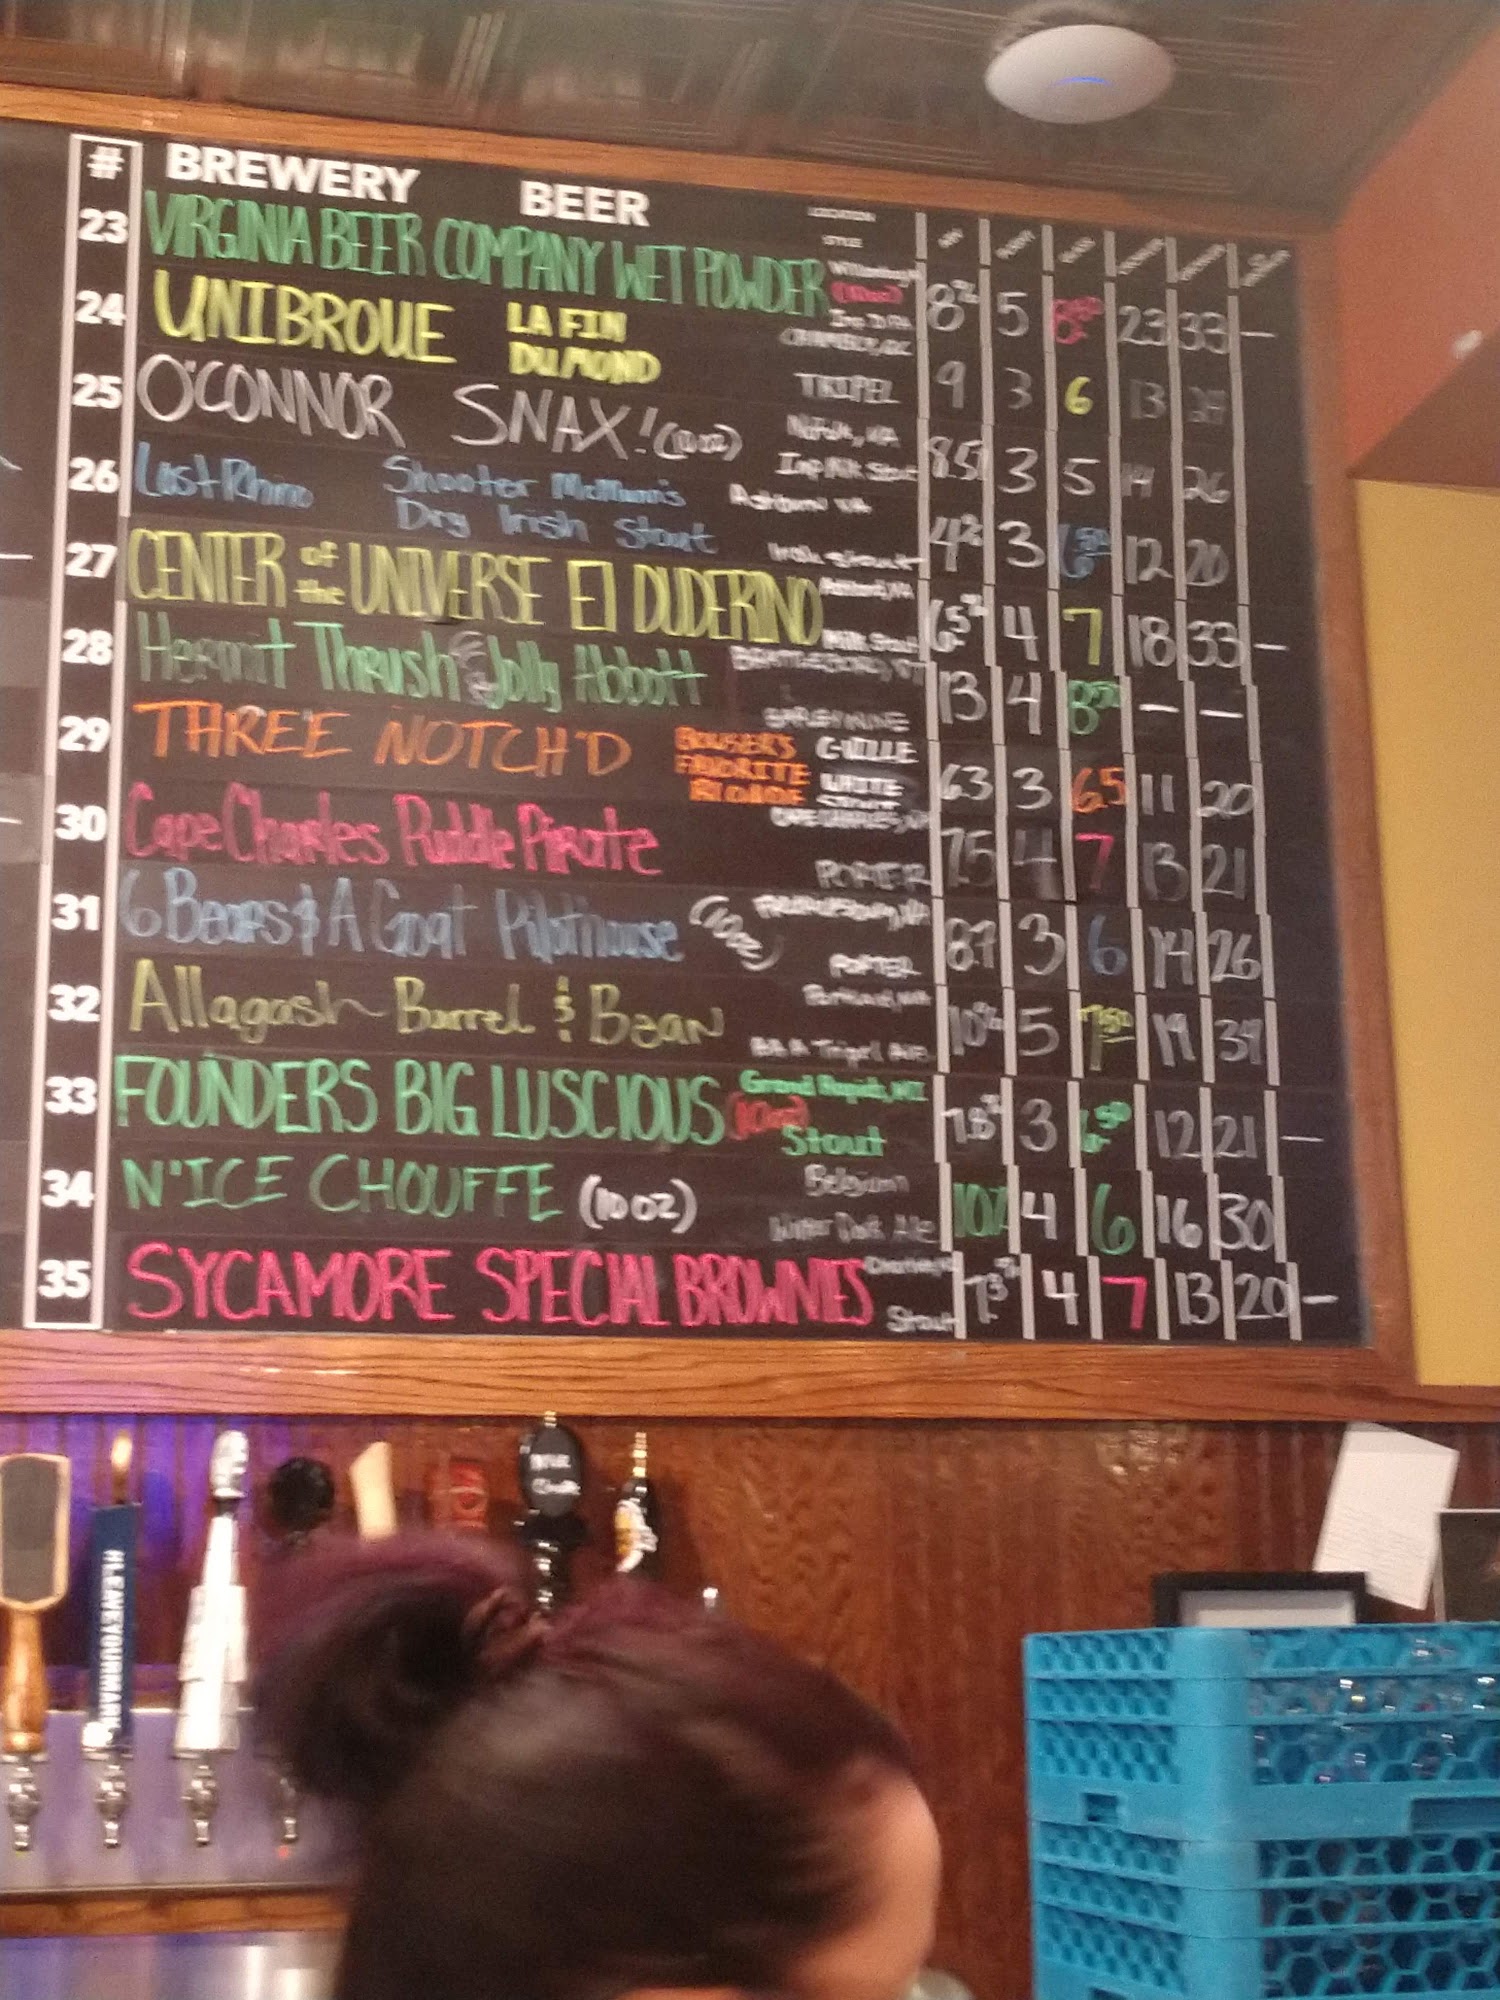 # BREWERY BEER LOCATION
STYLE
23 VIRGINIA BEER COMPANY WET POWDER (10oz) 8% 5 8.50 23 33 —
24 UNIBROUE LA FIN DU MOND CHAMBLY, QC TRIPEL 9 3 6 13
25 O'CONNOR SNAX! (10oz) Imp Milk Stout 8.5 3 5 14 26
26 Lost Rhino Shooter McMunn's Dry Irish Stout Ashburn VA Irish Stout 4% 3 6.50 12 20
27 CENTER of the UNIVERSE El DUDERINO Ashland, VA Milk Stout 6.5% 4 7 18 33 —
28 Hermit Thrush Jolly Abbott BRATTLEBORO, VT BARLEYWINE 13 4 8.50 — —
29 THREE NOTCH'D BOWSER'S FAVORITE BLONDE C-VILLE WHITE STOUT 6.3 3 6.5 11 20
30 Cape Charles Puddle Pirate CAPE CHARLES, VA PORTER 7.5 4 7 13 21
31 6 Bears & A Goat Pilothouse (10oz) PORTER 8.7 3 6 14 26
32 Allagash Barrel & Bean BBA Tripel Ale 10% 5 7.50 19 34
33 FOUNDERS BIG LUSCIOUS (10oz) Grand Rapids, MI Stout 7.8% 3 6.50 12 21 —
34 N'ICE CHOUFFE (10oz) Belgium Winter Dark Ale 10% 4 6 16 30
35 SYCAMORE SPECIAL BROWNIES Stout 7.3% 4 7 13 20 —
HLEAVEYOURMARK